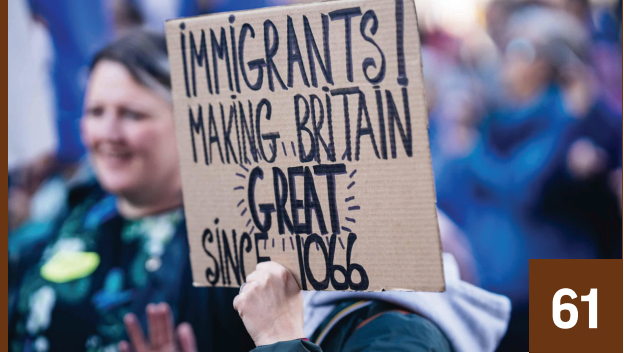 iMMiGRANTS!
MAKING BRiTAiN
GREAT
SiNCE 1066
61